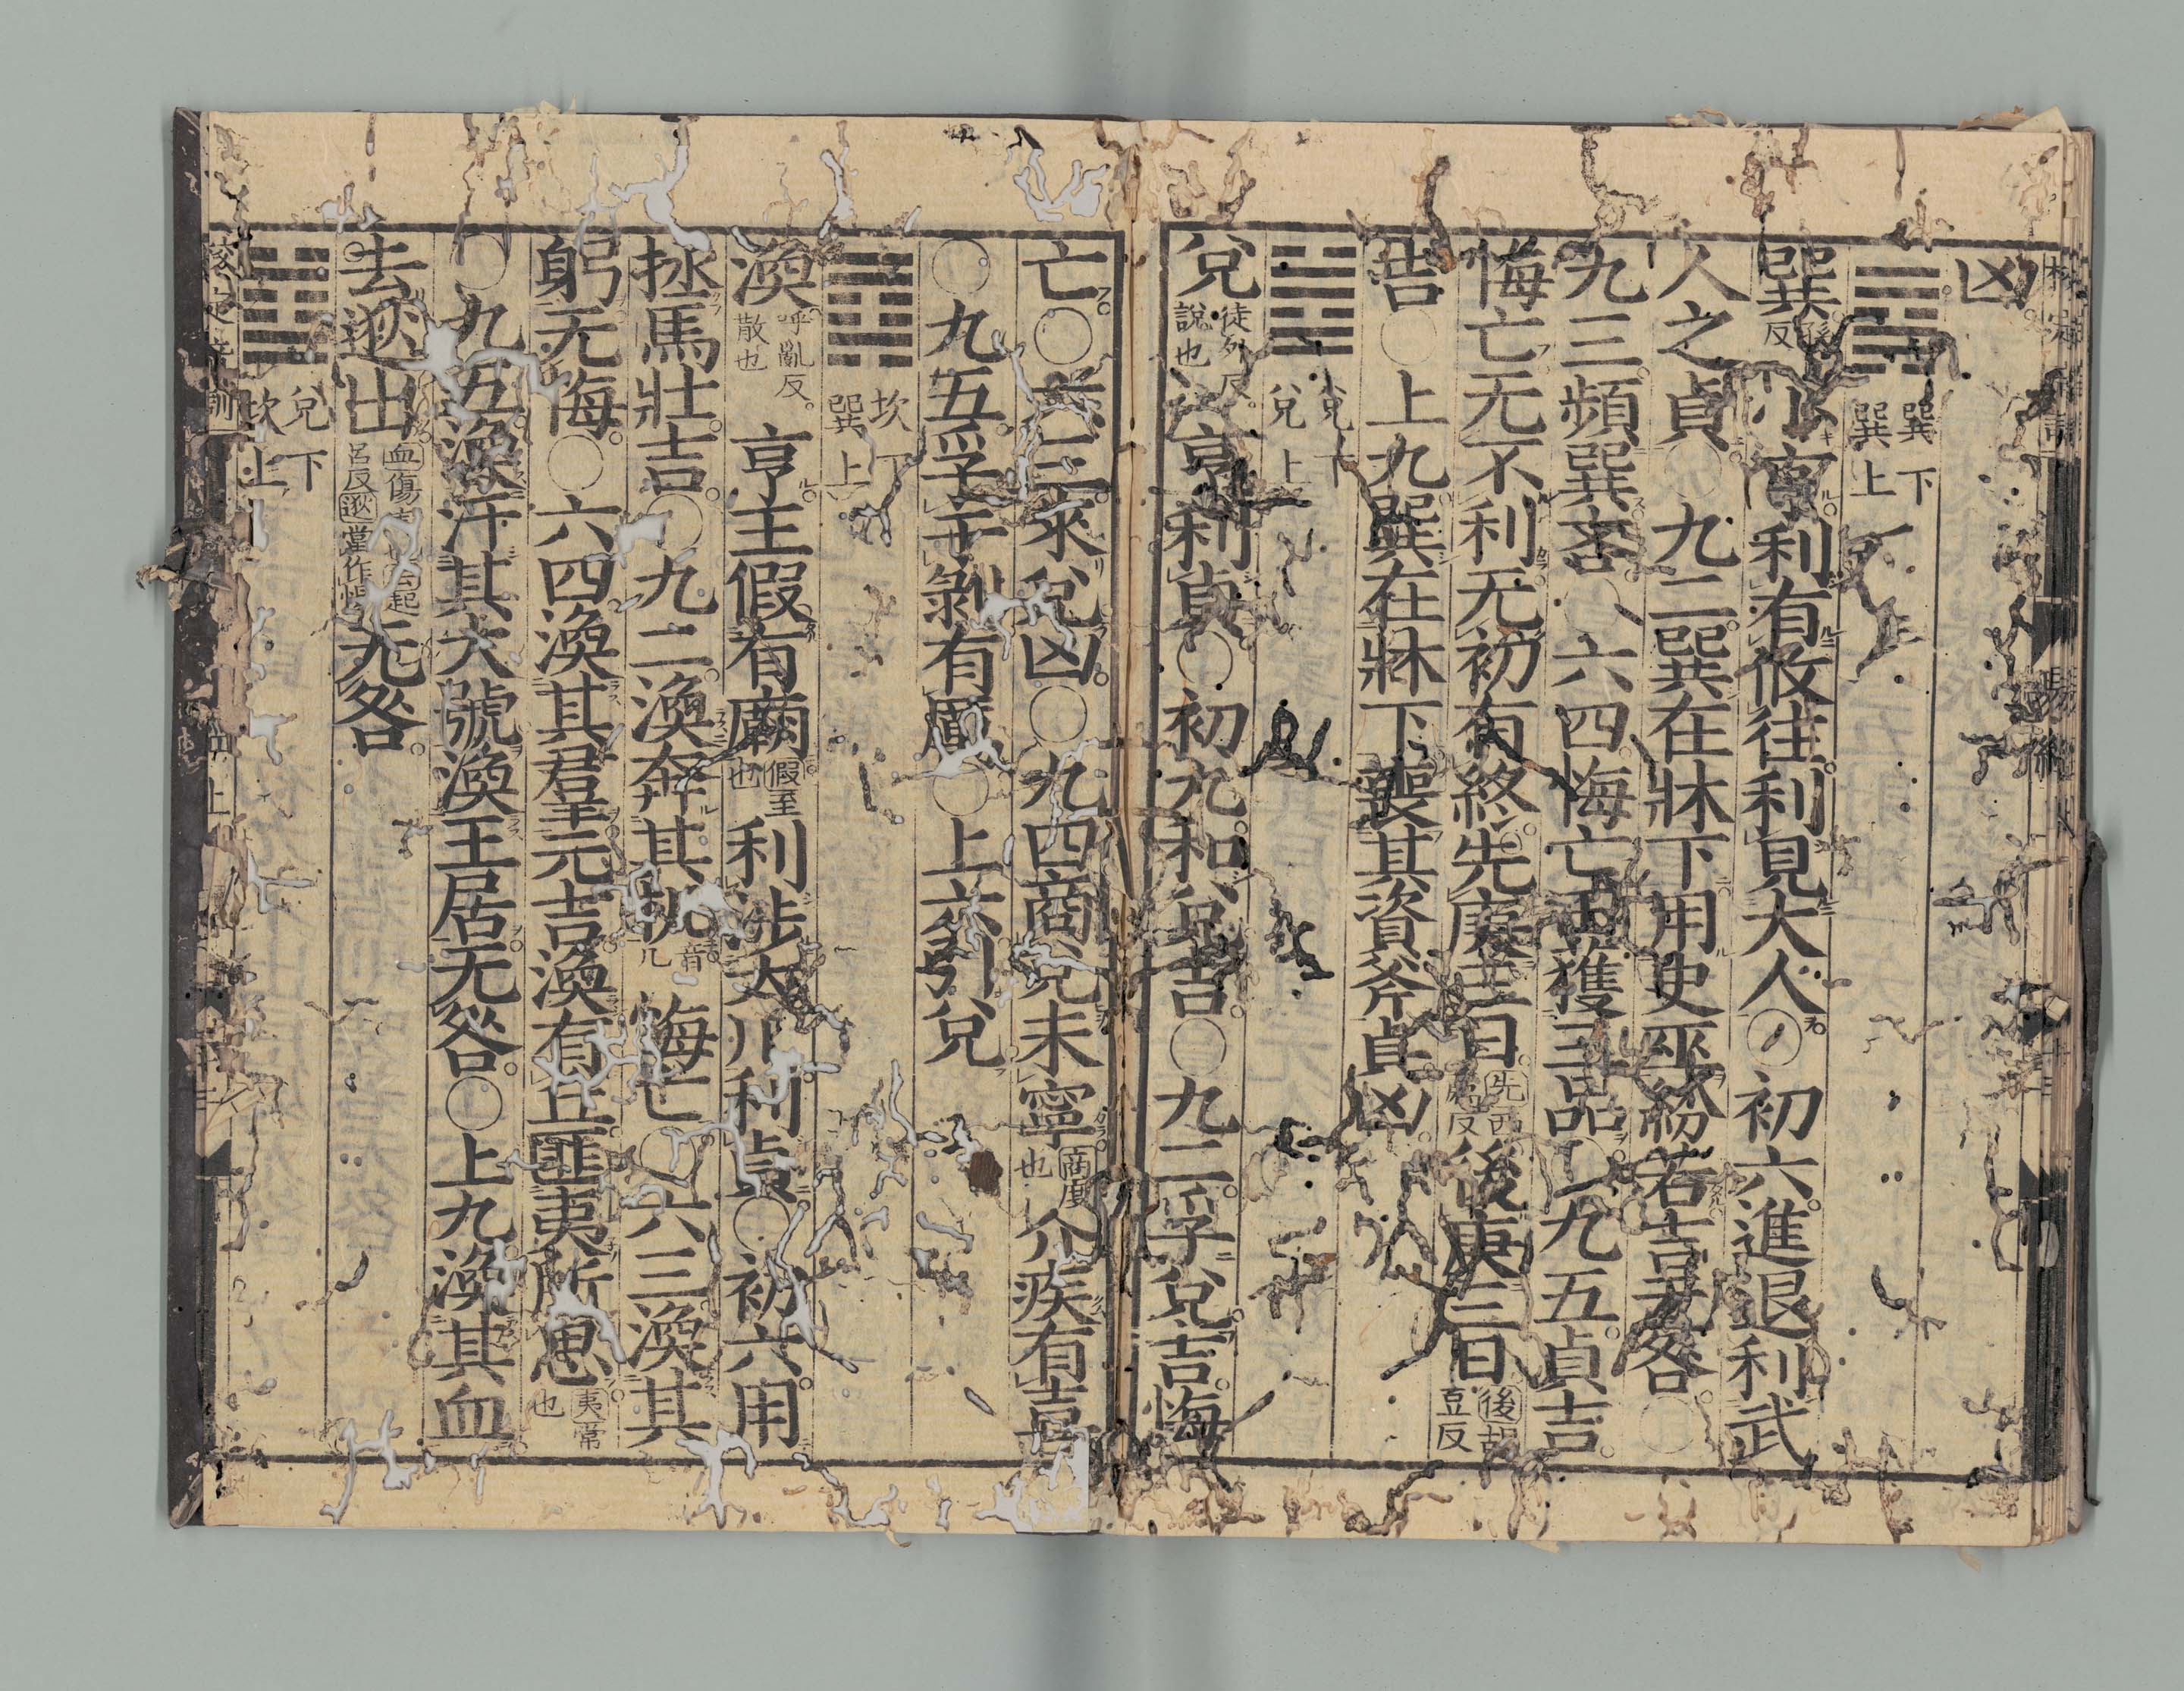 凶
巽下
巽上
巽 小亨利有攸往利見大人○初六進退利武
人之貞○九二巽在牀下用史巫紛若吉无咎○
九三頻巽吝○六四悔亡田獲三品○九五貞吉
悔亡无不利无初有終先庚三日 後庚三日後胡豆反
告○上九巽在牀下喪其資斧貞凶
兌下
兌上
兌徒列反說也亨利貞○初九和兌吉○九二孚兌吉悔
亡○六三來兌凶○九四商兌未寧商度也介疾有喜
○九五孚于剝有厲○上六引兌
坎下
巽上
渙呼亂反散也亨王假有廟假至也利涉大川利貞○初六用
拯馬壯吉○九二渙奔其机音几悔亡○六三渙其
躬无悔○六四渙其群元吉渙有丘匪夷所思夷常也
○九五渙汗其大號渙王居无咎○上九渙其血
去逖出血傷 去起呂反逖當作惕无咎
兌下
坎上